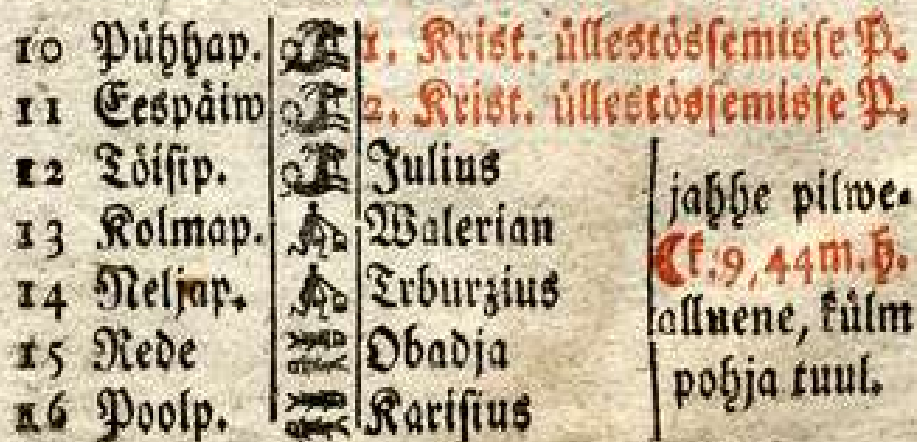 10 Pühhap. 1. Krist. üllestössemisse P.
11 Eespäiw 2. Krist. üllestössemisse P.
12 Töisip. Julius
13 Kolmap. Walerian
14 Neljap. Trburzius
15 Rede Obadja
16 Poolp. Karisius
jahhe pilwe-
k. 9, 44 m. h.
alluene, külm
pohja tuul.